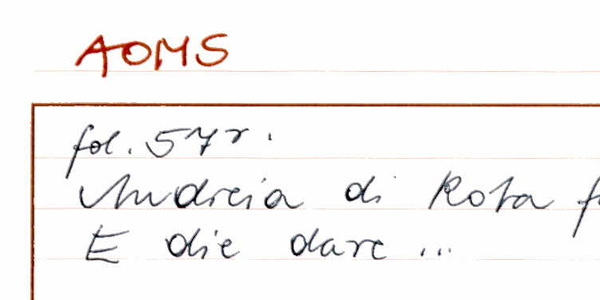 AOMS
fol. 57r.
Andreia di Rota
E die dare ...